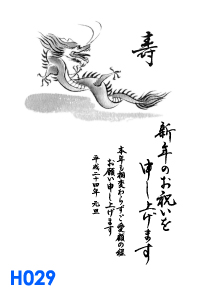 寿
新年のお祝いを
申し上げます
本年も相変わらずご愛顧の程
お願い申し上げます
平成二十四年 元旦
H029